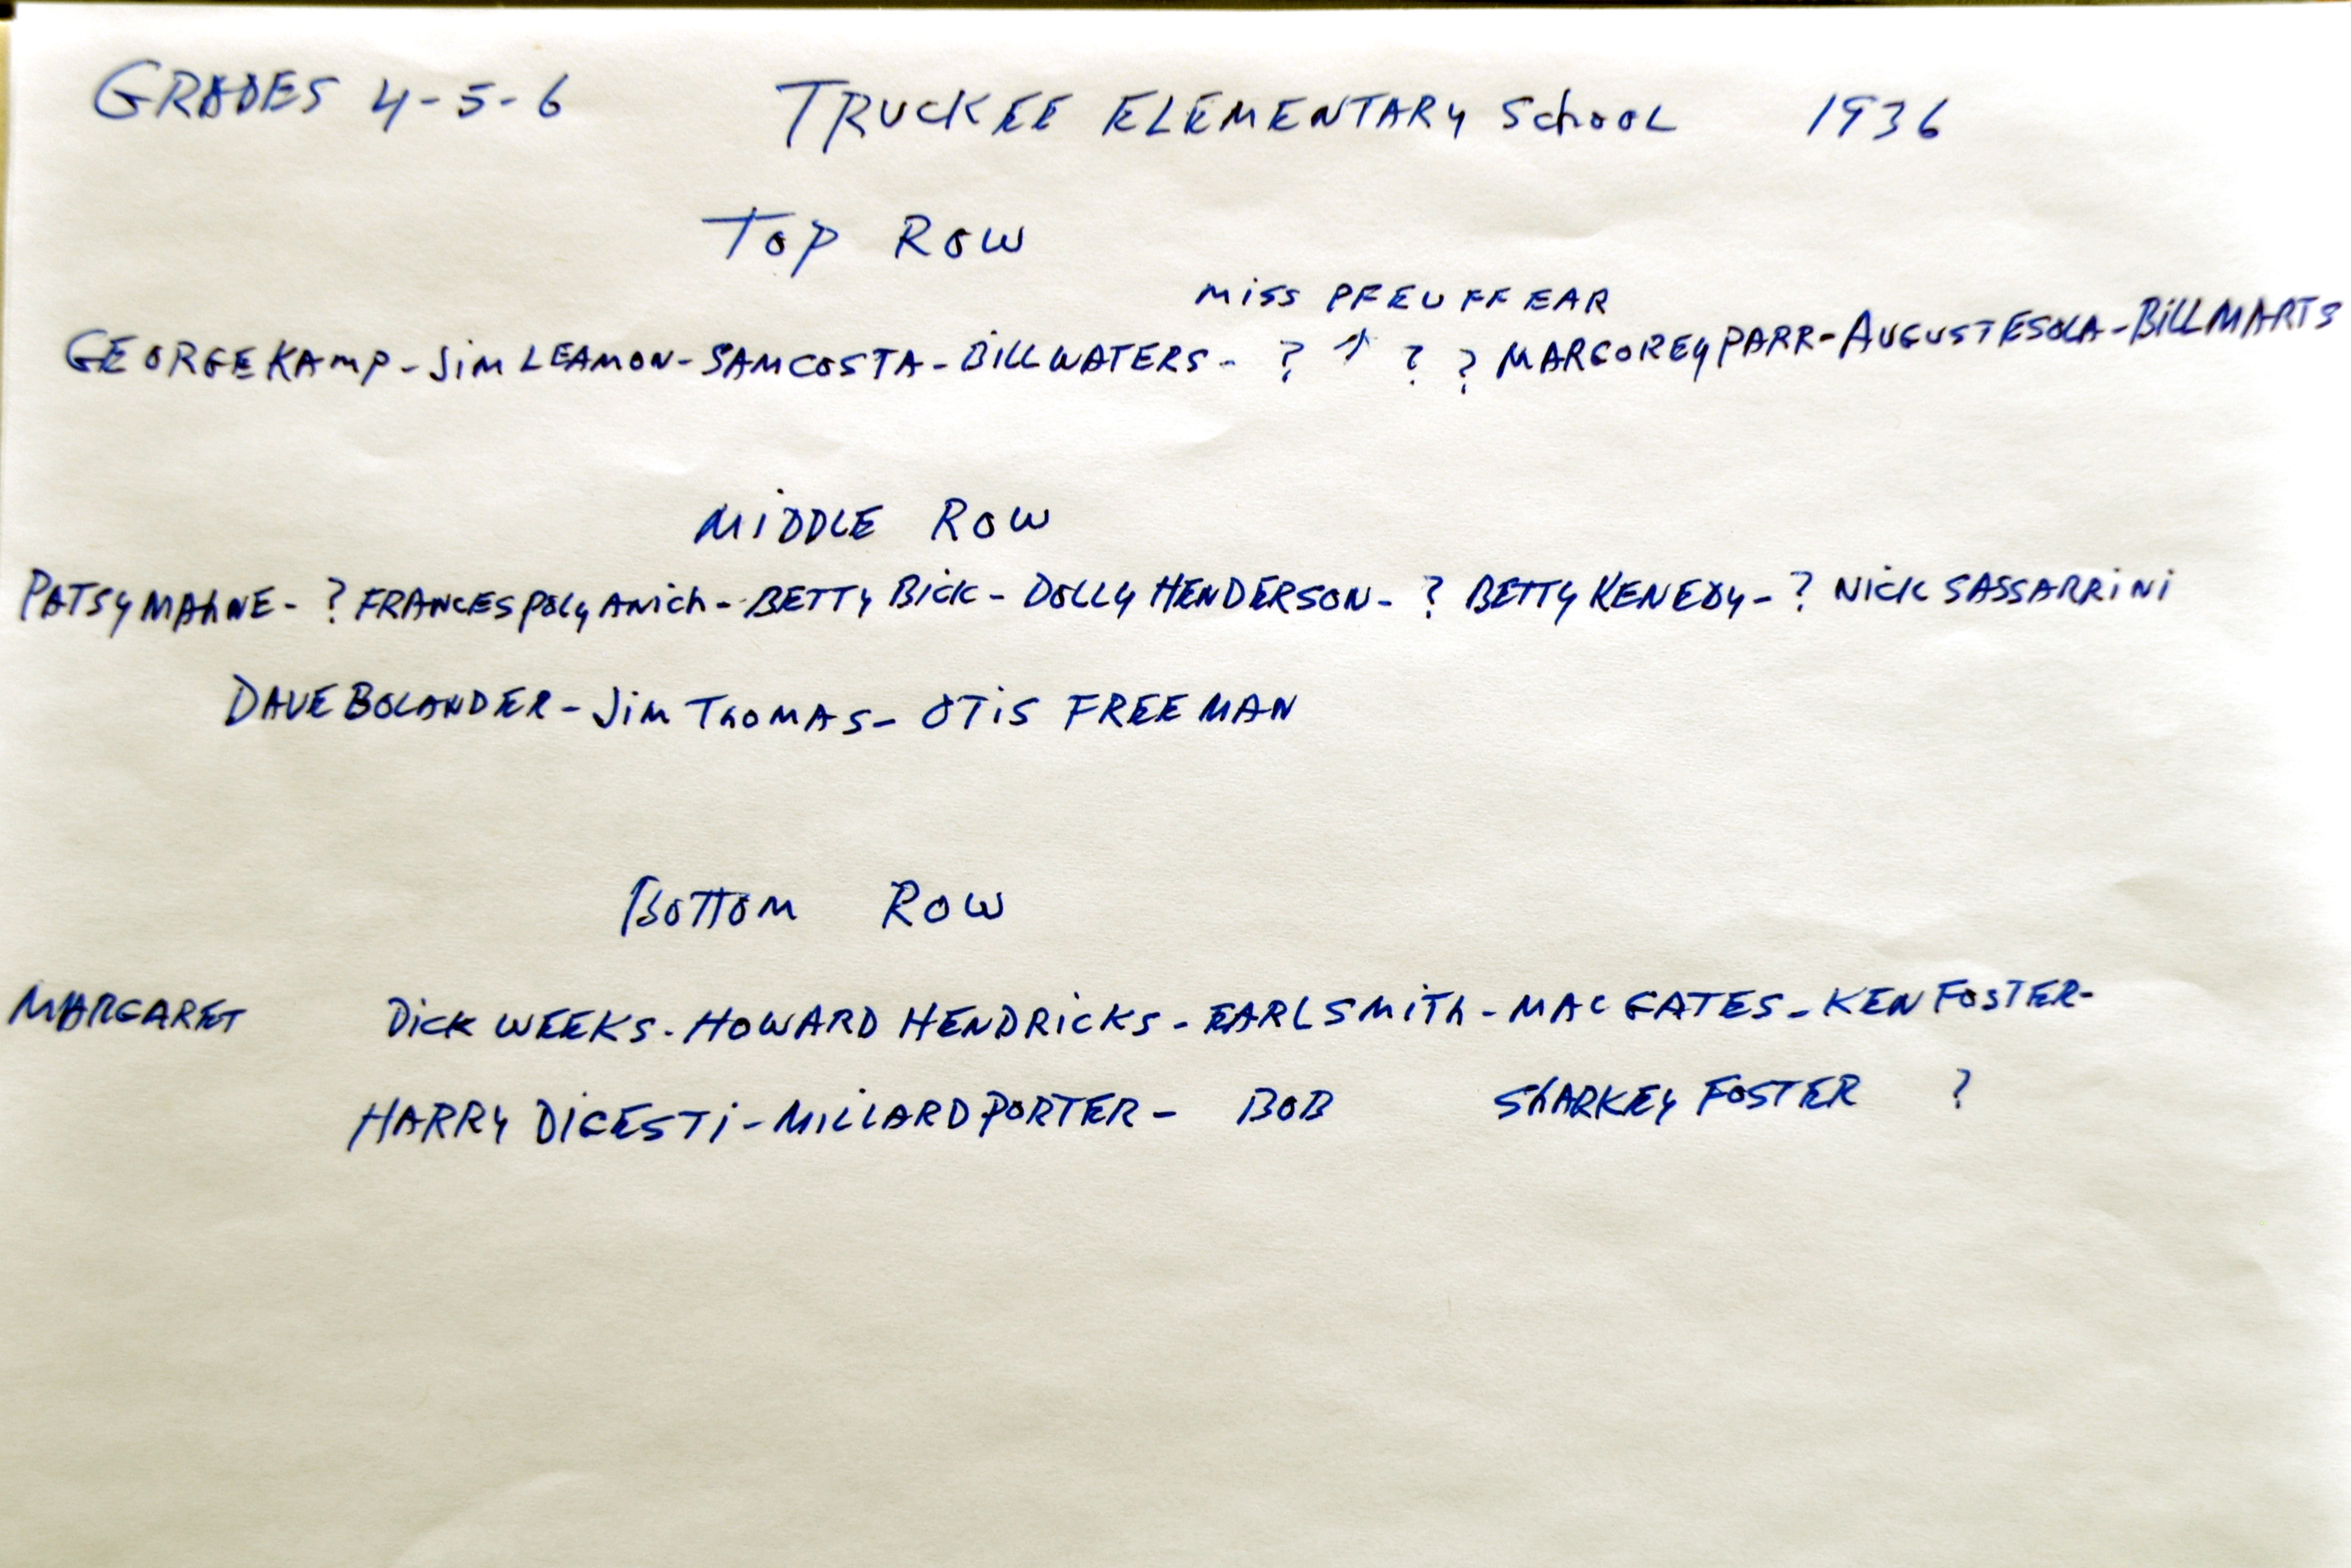 GRADES 4-5-6 TRUCKEE ELEMENTARY School 1936
TOP ROW
MISS PFEUFFEAR
GEORGE KAMP - JIM LEAMON - SAM COSTA - BILL WATERS - ? ↑ ? ? MARGOREY PARR - AUGUST ESOLA - BILL MARTS
MIDDLE ROW
PATSY MAhNE - ? FRANCES POLYANICh - BETTY BICK - DOLLY HENDERSON - ? BETTY KENEDY - ? NICK SASSARRINI
DAVE BOLANDER - JIM ThOMAS - OTIS FREEMAN
BOTTOM ROW
MARGARET DICK WEEKS - HOWARD HENDRICKS - EARL SMITh - MAC GATES - KEN FOSTER -
HARRY DIGESTI - MILLARD PORTER - BOB ShARKEY FOSTER ?